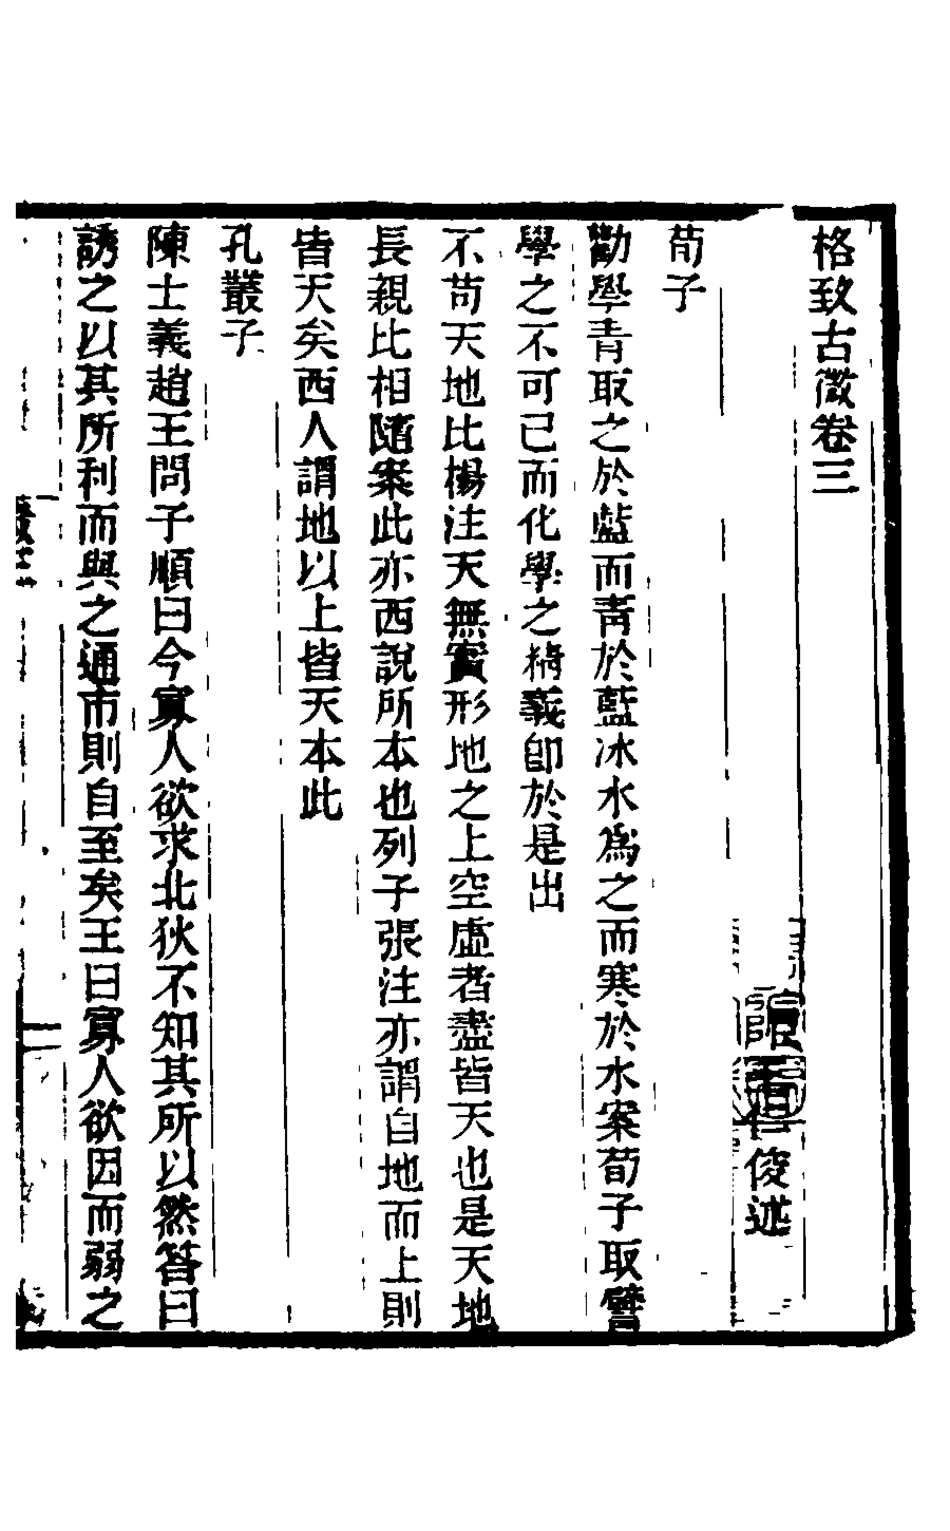 格致古微卷三
仁俊述
荀子
勸學青取之於藍而靑於藍冰水爲之而寒於水案荀子取譬
學之不可已而化學之精義卽於是出
不苟天地比楊注天無實形地之上空虛者盡皆天也是天地
長親比相隨案此亦西說所本也列子張注亦謂自地而上則
皆天矣西人謂地以上皆天本此
孔叢子
陳士義趙王問子順曰今寡人欲求北狄不知其所以然答曰
誘之以其所利而與之通市則自至矣王曰寡人欲因而弱之